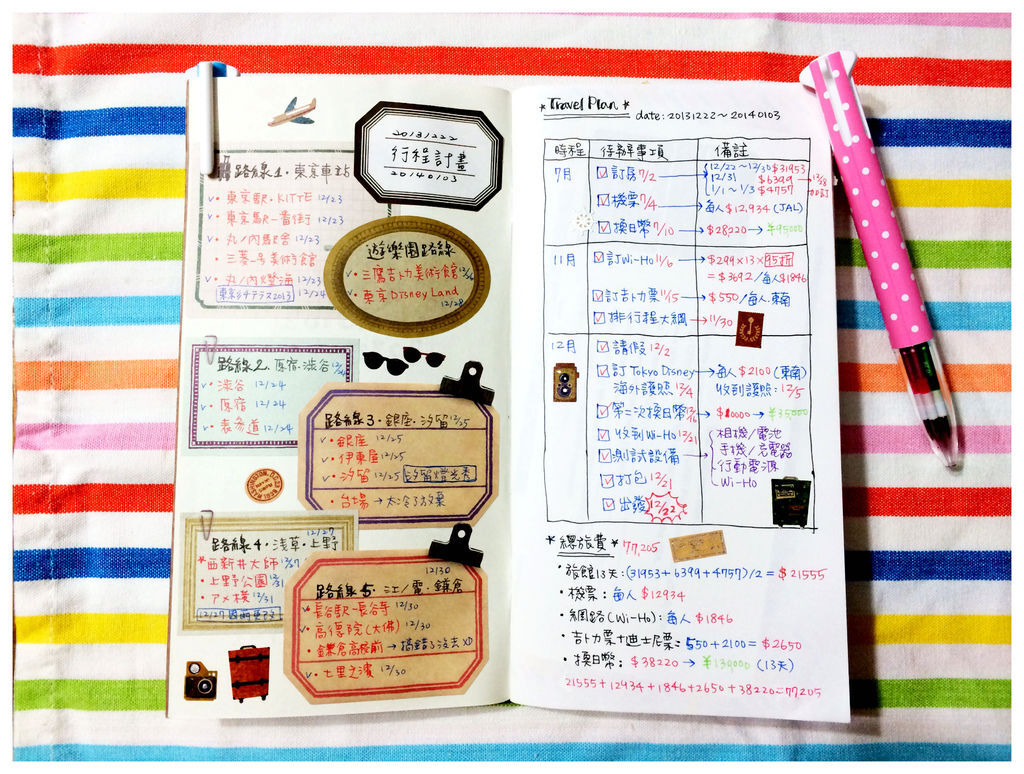 20131222
行程計畫
20140103
路線1・東京車站
東京駅・KITTE 12/23
東京駅一番街 12/23
丸ノ内駅舎 12/23
三菱一号美術館
丸ノ内燈海 12/23
東京ミチテラス2013 12/24
遊樂園路線
三鷹吉卜力美術館 12/26
東京Disney Land
12/28
路線2・原宿・渋谷 12/24
渋谷 12/24
原宿 12/24
表参道 12/24
路線3・銀座・汐留 12/25
銀座 12/25
伊東屋 12/25
汐留 12/25 汐留燈光秀
台場→太冷了放棄
12/27
路線4・浅草・上野
*西新井大師 12/27
上野公園 12/31
アメ横 12/31
12/30
路線5・江ノ電・鎌倉
長谷駅-長谷寺 12/30
高德院(大佛) 12/30
鎌倉高校前→搞錯了沒去XD
七里之濱 12/30
*Travel Plan*
date: 20131222~20140103
時程 待辦事項 備註
7月 訂房 7/2 12/22~12/30 $31953
12/31 $6399 12/18加訂
1/1~1/3 $4757
機票 7/4 → 每人$12,934 (JAL)
換日幣 7/10 → $28220 → ¥95000
11月 訂Wi-Ho 11/6 → $299×13×95折
=$3692/每人$1846
訂吉卜力票 11/5 → $550/每人.東南
排行程大綱 → 11/30
12月 請假 12/2
訂Tokyo Disney → 每人$2100 (東南)
海外護照 12/4 收到護照: 12/5
第二次換日幣 12/16 → $10000 → ¥35000
收到Wi-Ho 12/21 相機/電池
測試設備 手機/充電器
行動電源
打包 12/21 Wi-Ho
出發 12/22
*總旅費* 77,205
・旅館13天:(31953+6399+4757)/2=$21555
・機票: 每人 $12934
・網路(Wi-Ho): 每人 $1846
・吉卜力票+迪士尼票: 550+2100=$2650
・換日幣: $38220 → ¥130000 (13天)
21555+12934+1846+2650+38220=77205